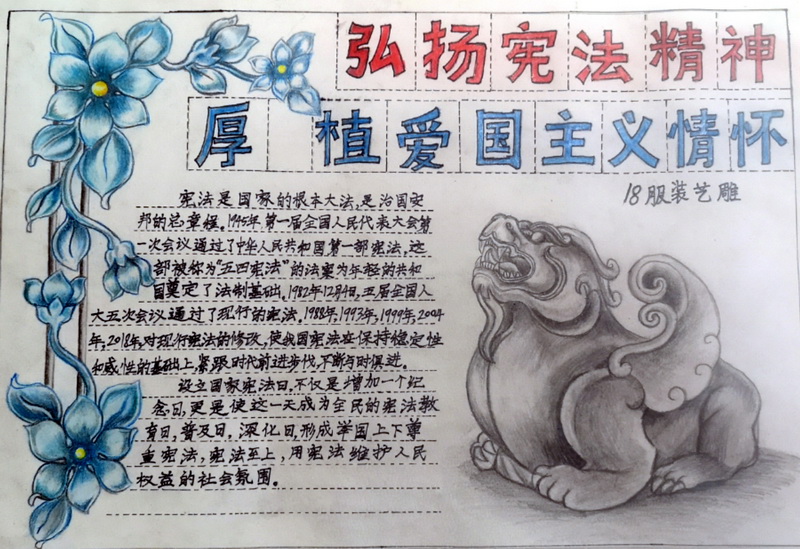 弘扬宪法精神
厚植爱国主义情怀
18服装艺雕
宪法是国家的根本大法,是治国安
邦的总章程。1945年,第一届全国人民代表大会第
一次会议通过了中华人民共和国第一部宪法,这
部被称为“五四宪法”的法案为年轻的共和
国奠定了法制基础。1982年12月4日,五届全国人
大五次会议通过了现行的宪法。1988年,1993年,1999年,2004
年,2018年,对现行宪法的修改,使我国宪法在保持稳定性
和威性的基础上,紧跟时代前进步伐,不断与时俱进。
设立国家宪法日,不仅是增加一个纪
念日,更是使这一天成为全民的宪法教
育日,普及日,深化日,形成举国上下尊
重宪法,宪法至上,用宪法维护人民
权益的社会氛围。